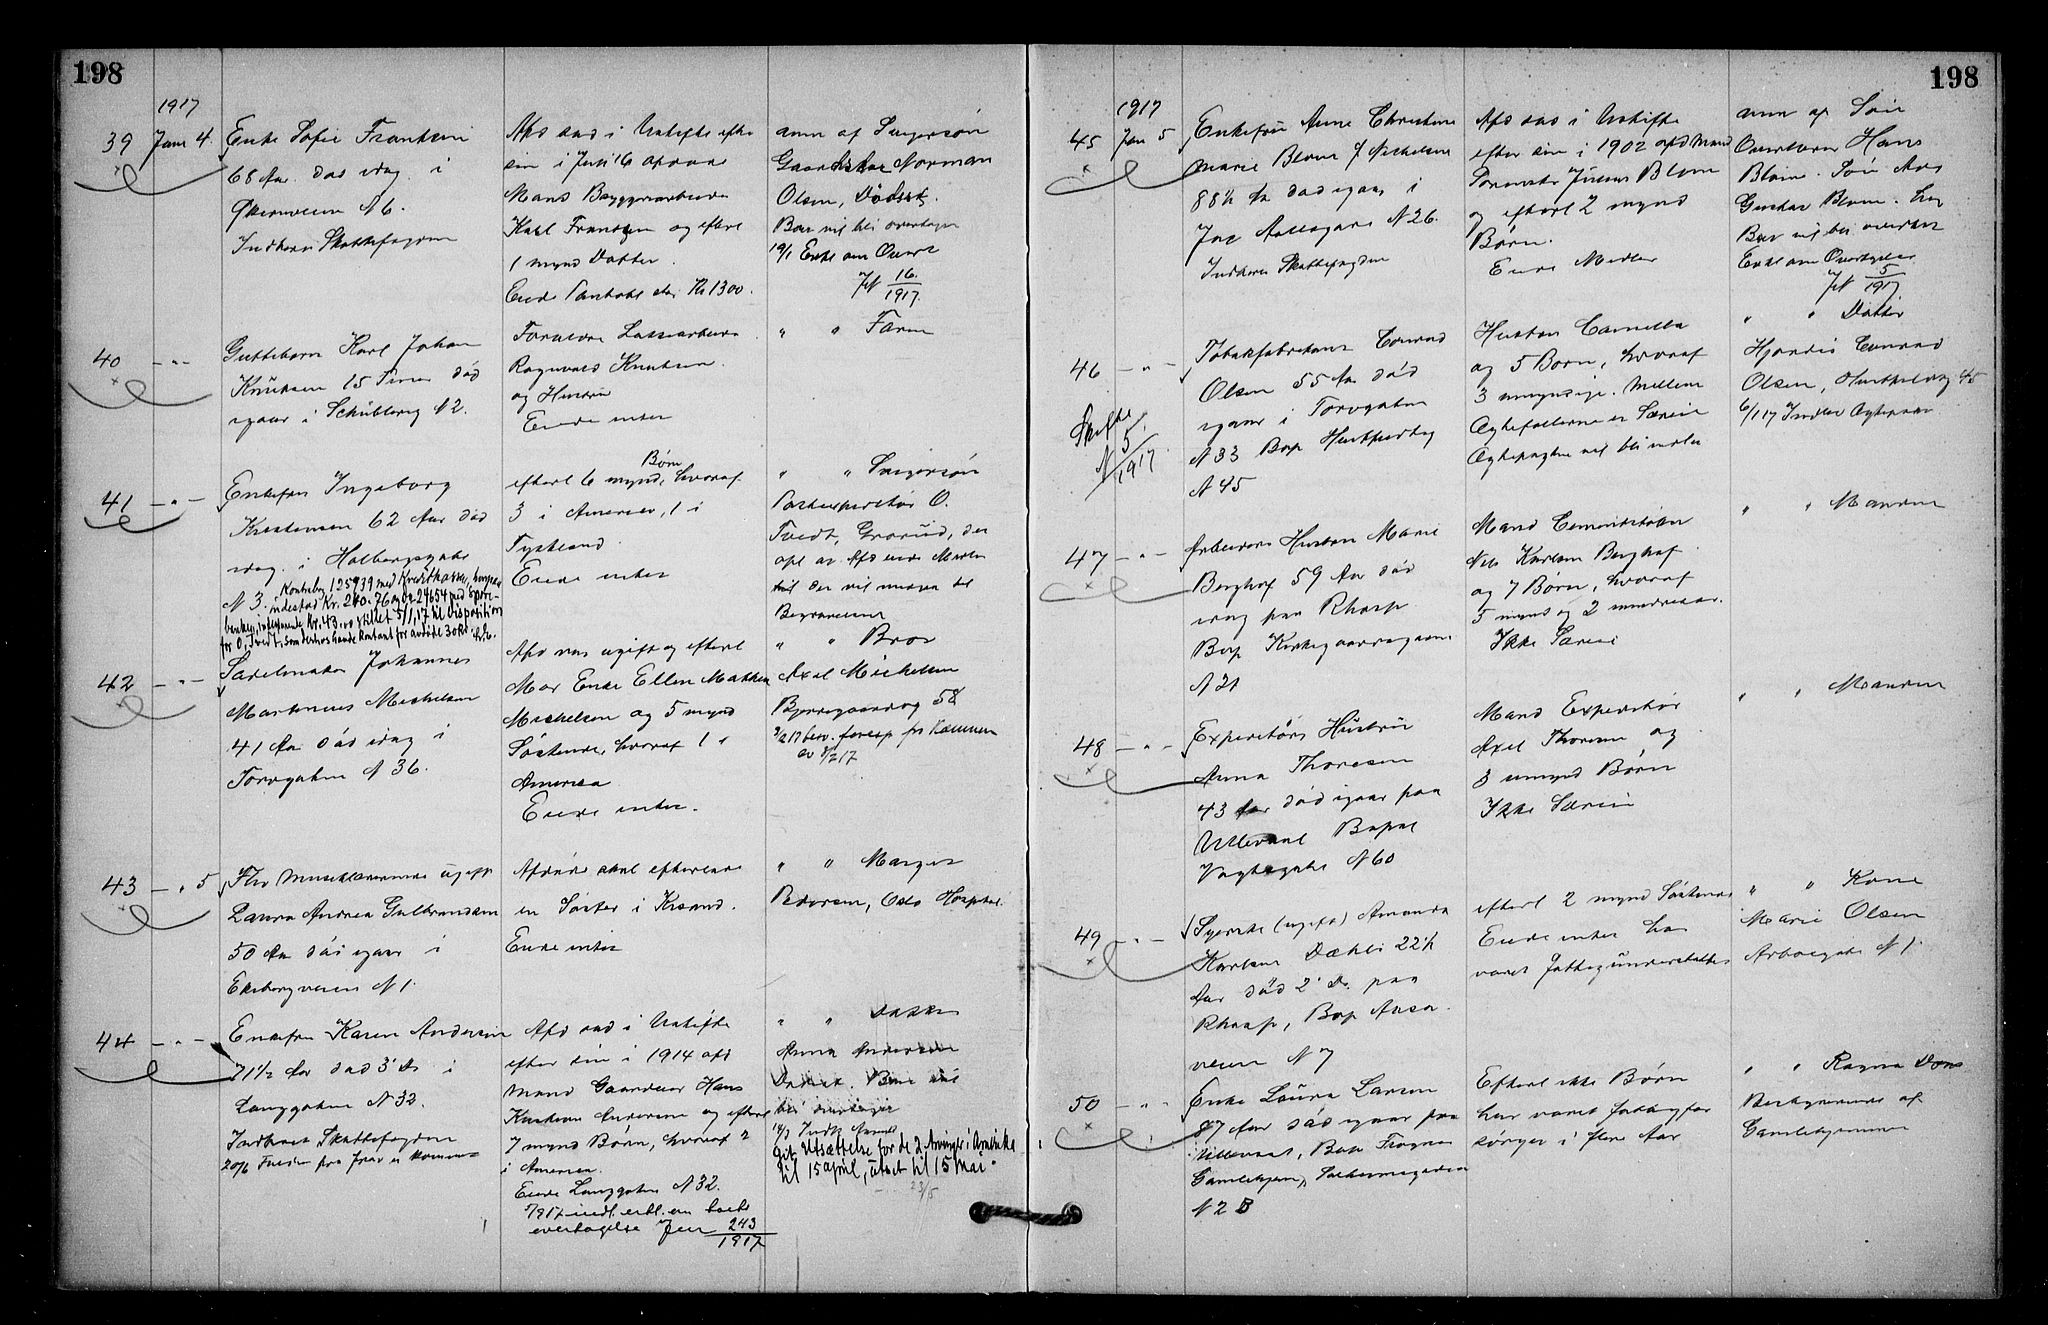 198
1917
39 Janr 4. Enke Sofie Frantzen
68 Aar død idag i
Økernveien N 6.
Indberr Skattefogden
Afd sad i Uskifte efter
sin i Juli 16 afdøde
Mand Bryggeriarbeider
Karl Frantzen og efterl
1 mynd Datter.
Eiede Panteobl stor Kr 1300.
anm af Svigersøn
Gaardeier Norman
Olsen, Dødsst.
Boet vil bli overtaget
19/1 Erkl om Overt
JN 16/1917.
40 - " - Guttebarn Karl Johan
Knutsen 15 Timer død
igaar i Schüblerg N 2.
Forældre Lossearbeider
Ragnvald Knutsen
og Hustru
Eiede intet
" " Faren
41 - " - Enkefru Ingeborg
Kristensen 62 Aar død
idag i Holbergsgate
N 3. Kontrabog 125939 med Kreditkassen, hvorpaa
indestod Kr. 240.76 og 24654 med Spare-
banken, indestaaende Kr. 43.00 stillet 5/1,17 til disposition
for O. Tvedt, som derhos havde kontant for avdøde 30 kr.
efterl 6 mynd Børn, hvoraf
3 i Amerika, 1 i
Tyskland.
Eiede intet
" " Svigersøn
Postexpeditør O.
Tvedt, Grorud, der
opl at Afd eiede Midler
til der vil medgaa til
Begravelsen
42 - " - Sadelmaker Johannes
Martinius Mickelsen
41 Aar død idag i
Torvgaten N 36.
Afd var ugift og efterl
Mor Enke Ellen Mathea
Mickelsen og 5 mynd
Søskende, hvoraf 1 i
Amerika
Eiede intet.
" " Bror
Axel Mickelsen
Bjerregaardsg 58
2/2 17 besv. foresp fra Kæmner
av 1/2 17
43 - " 5 Fhv Musiklærerinde ugift
Laura Andrea Gulbrandsen
50 Aar død igaar i
Ekebergveien N 1.
Afdøde skal efterlade
en Søster i Krsand.
Eiede intet
" " Margit
Pedersen, Oslo Hospital.
44 - " - Enkefru Karen Andersen
71 1/2 Aar død 3' Ds i
Langgaten N 32.
Indberet Skattefogden
20/6
Afd sad i Uskifte
efter sin i 1914 afd
Mand Gaardeier Hans
Kristian Andersen og efterl
7 mynd Børn, hvoraf 2
i Amerika.
Eiede Langgaten N 32.
erkl. om boets
overtagelse Jnr 243/1917
" " Datter
Anna Andersen
Dødsst. Boet vil
bli overtaget
Git Utsættelse for de 2 Arvinger i Amerika
til 15 april, utsat til 15 Mai.
23/5
198
1917
45 Jan 5 Enkefru Anne Christine
Marie Blom f Nickelsen
88 1/2 Aar død igaar i
Jac Aallsgade N 26.
Indberr Skattefogden
Afd sad i Uskifte
efter sin i 1902 afd Mand
Tømmerm Julius Blom
og efterl 2 mynd
Børn.
Eiede Midler
anm af Søn
Overlærer Hans
Blom. Søn Adv
Gustav Blom.
Boet vil bli overtat
Erkl om Overtagelse
JN 5/1917
46 - " - Tobakfabrikant Conrad
Olsen 55 Aar død
igaar i Torvgaten
N 33 Bop Hertzbergsg
N 45
Skifte
N 5/1917
Hustru Camilla
og 5 Børn, hvoraf
3 umyndige. Mellem
Ægtefællerne er Særeie
Ægtepagten vil bli indlev
" " Datter
Hjørdis Conrad
Olsen, Hertzbergsg 45
6/1 17 Indlev Ægtepagt
47 - " - Arbeiders Hustru Marie
Berghof 59 Aar død
idag paa Rhosp.
Bop Kirkegaardsgaden
N 21
Mand Cementstøber
Nils Karlsen Berghof
og 7 Børn, hvoraf
5 mynd og 2 mindreaar.
Ikke Særeie
" " Manden
48 - " - Expeditørs Hustru
Anna Thoresen
43 Aar død igaar paa
Ullevaal Bopæl
Vogtsgate N 60
Mand Expeditør
Axel Thoresen og
3 umynd Børn
Ikke Særeie
" " Manden
49 - " - Syerske (ugift) Amanda
Karlsen Dæhli 22 1/2
Aar død 2' Ds paa
Rhosp, Bop Aasa-
veien N 7
efterl 2 mynd Søskende
Eiede intet har
været fattigunderstøttet
" " Kone
Marie Olsen
Arboesgate N 1.
50 - " - Enke Laura Larsen
87 Aar død igaar paa
Ullevaal, Bop Frogner
Gamlehjem, Solheimsgaden
N 2 B
Efterl ikke Børn
har været fattigfor
sørget i flere Aar
" " Ragna Dons
Bestyrerinde af
Gamlehjemmet